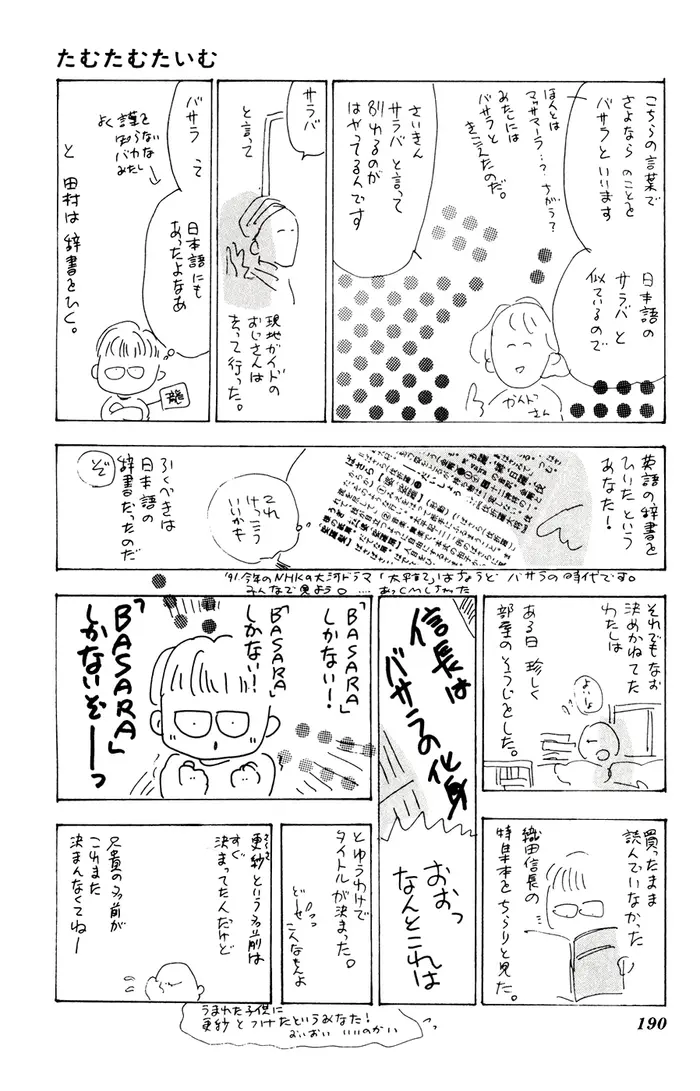 たむたむたいむ
こちらの言葉で
さよなら のことを
バサラといいます
ほんとは
マッサマーラ…? ちがう?
みたしには
バサラと
きこえたのだ。
日本語の
サラバ と
似ているので
さいきん
サラバ と言って
別れるのが
はやってるんです
かんどさん
サラバ
と言って
現地ガイドの
おじさんは
去って行った。
バサラ って
日本語にも
あったよなあ
と 田村は 辞書をひく。
英語の辞書を
ひいた という
あなた!
これ
けっこう
いいかも
ひくべきは
日本語の
辞書だったのだ
ぞ
'91.今年のNHKの大河ドラマ「太平記」はちょうど バサラの時代です。
みんなで見よう。 …… あっCMしちゃった
それでもなお
決めかねてた
わたしは
ある日 珍しく
部屋のそうじをした。
買ったまま
読んでいなかった
織田信長の
特集本をちらりと見た。
おおっ
なんとこれは
信長は
バサラの化身
「BASARA」
しかない!
「BASARA」
しかない!
「BASARA」
しかないぞーっ
とゆうわけで
タイトルが決まった。
どーせ
こんなもんよ
更紗という名前は
すぐ
決まってたんだけど
兄貴の名前が
これまた
決まんなくてねー
うまれた子供に
更紗とつけたというみなた!
おいおい いいのかい
190